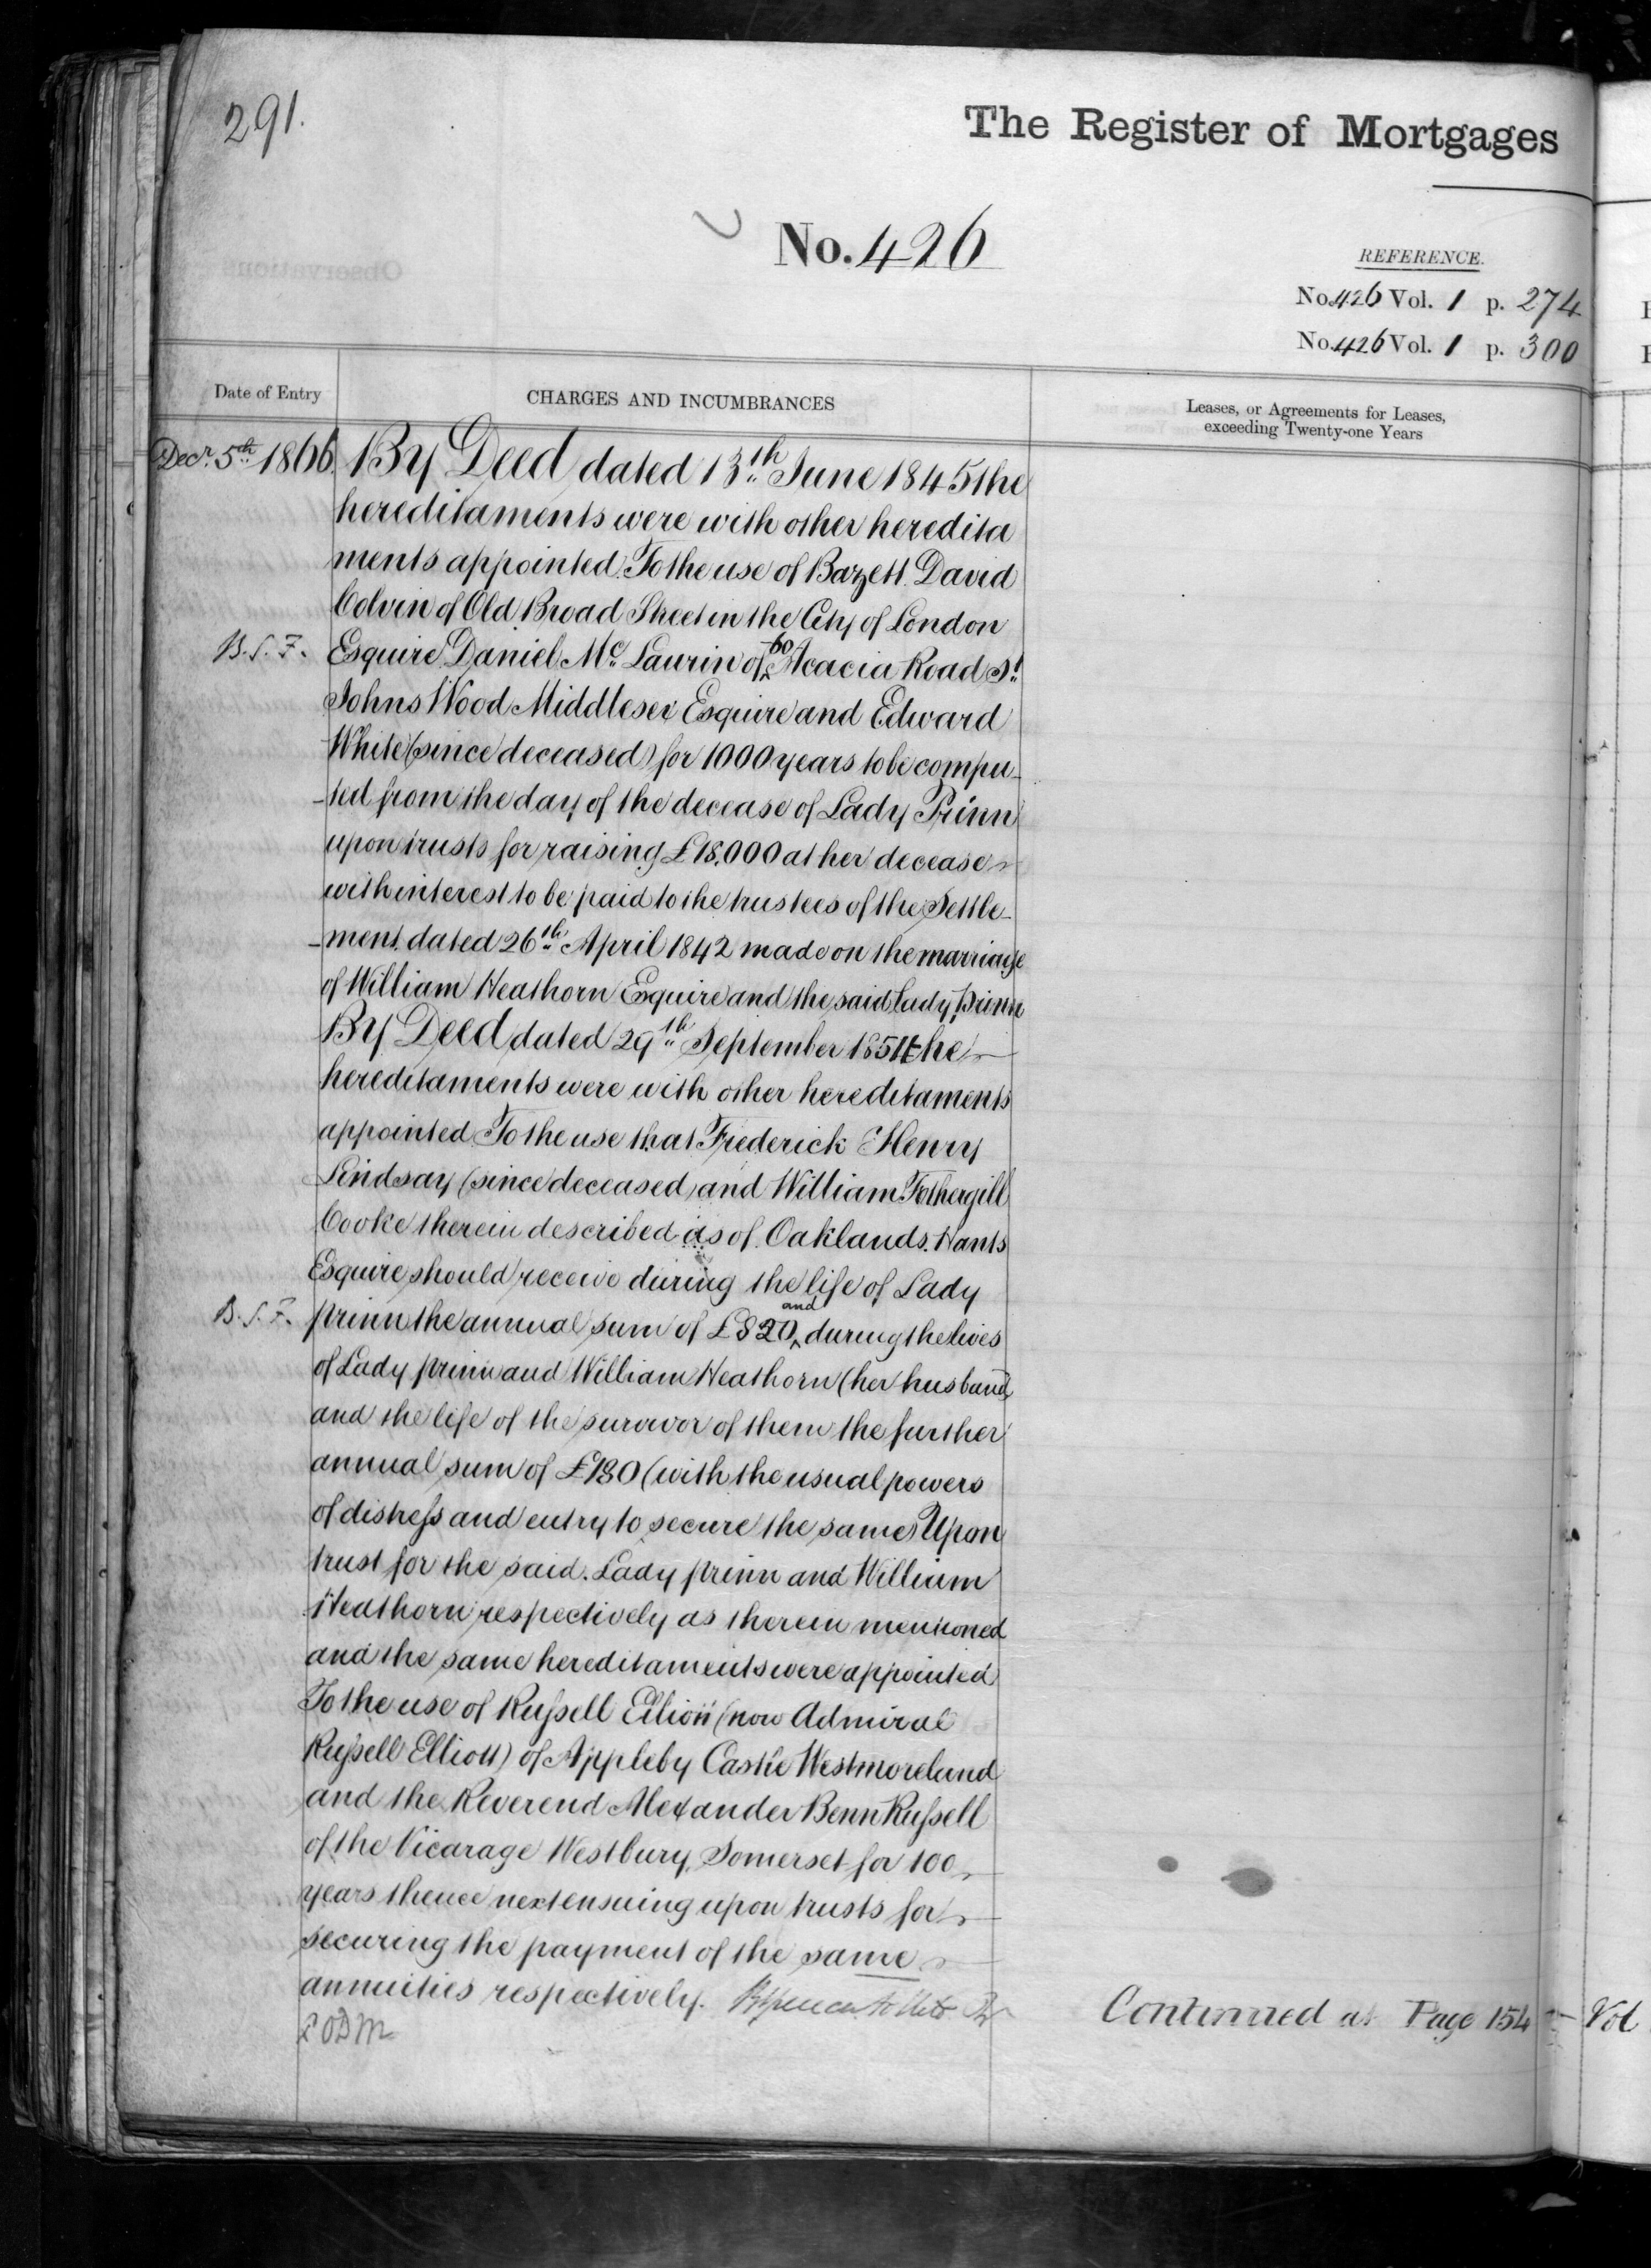 291.
The Register of Mortgages
No. 426
REFERENCE.
No. 426 Vol. 1 p. 274
No. 426 Vol. 1 p. 300
Date of Entry
CHARGES AND INCUMBRANCES
Leases, or Agreements for Leases,
exceeding Twenty-one Years
Decr. 5th 1866. By Deed dated 13th June 1845 the
hereditaments were with other heredita
ments appointed To the use of Bazett David
Colvin of Old Broad Street in the City of London
B.S.F. Esquire Daniel Mc Laurin of 60 Acacia Road St
Johns Wood Middlesex Esquire and Edward
White (since deceased) for 1000 years to be compu-
-ted from the day of the decease of Lady Prinn
upon trusts for raising £18,000 at her decease
with interest to be paid to the trustees of the Settle-
-ment dated 26th April 1842 made on the marriage
of William Heathorn Esquire and the said Lady Prinn
By Deed dated 29th September 1851 the
hereditaments were with other hereditaments
appointed To the use that Frederick Henry
Lindsay (since deceased) and William Fothergill
Cooke therein described as of Oaklands Hants
Esquire should receive during the life of Lady
B.S.F. prinn the annual sum of £820 and during the lives
of Lady prinn and William Heathorn (her husband)
and the life of the survivor of them the further
annual sum of £180 (with the usual powers
of distress and entry to secure the same) Upon
trust for the said Lady prinn and William
Heathorn respectively as therein mentioned
and the same hereditaments were appointed
To the use of Russell Elliott (now Admiral
Russell Elliott) of Appleby Castle Westmoreland
and the Reverend Alexander Benn Russell
of the Vicarage Westbury Somerset for 100
years thence next ensuing upon trusts for
securing the payment of the same
annuities respectively.
Continued at Page 154 Vol